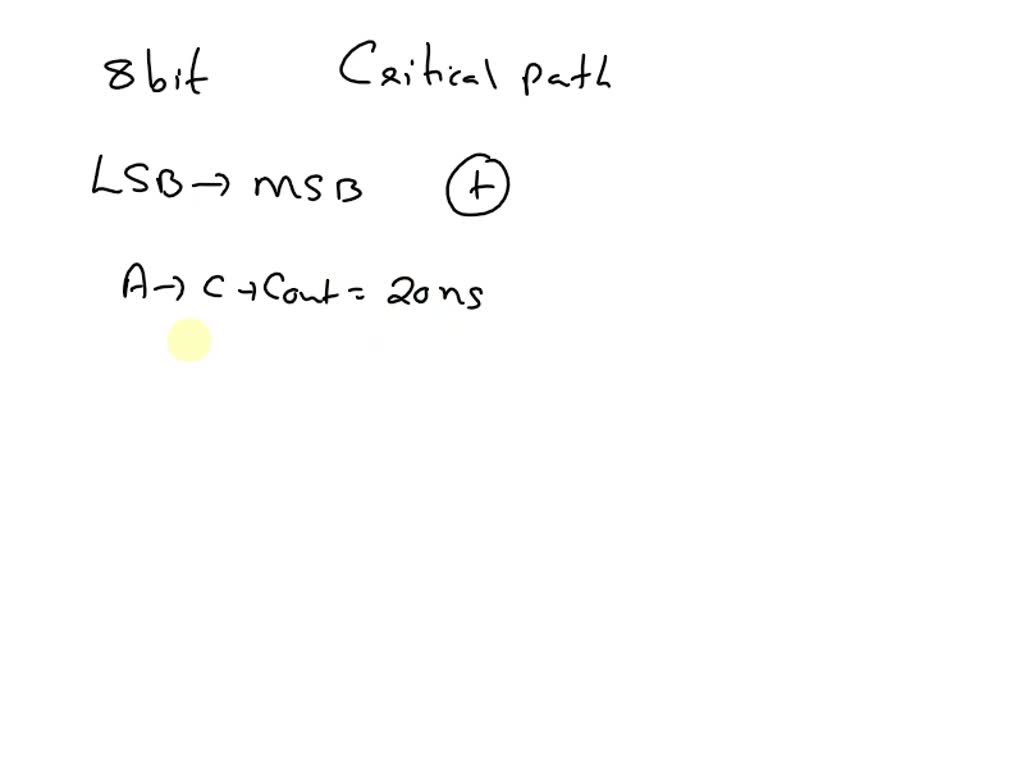 8bit Critical path
LSB→ MSB +
A→ C→Cout = 20ns